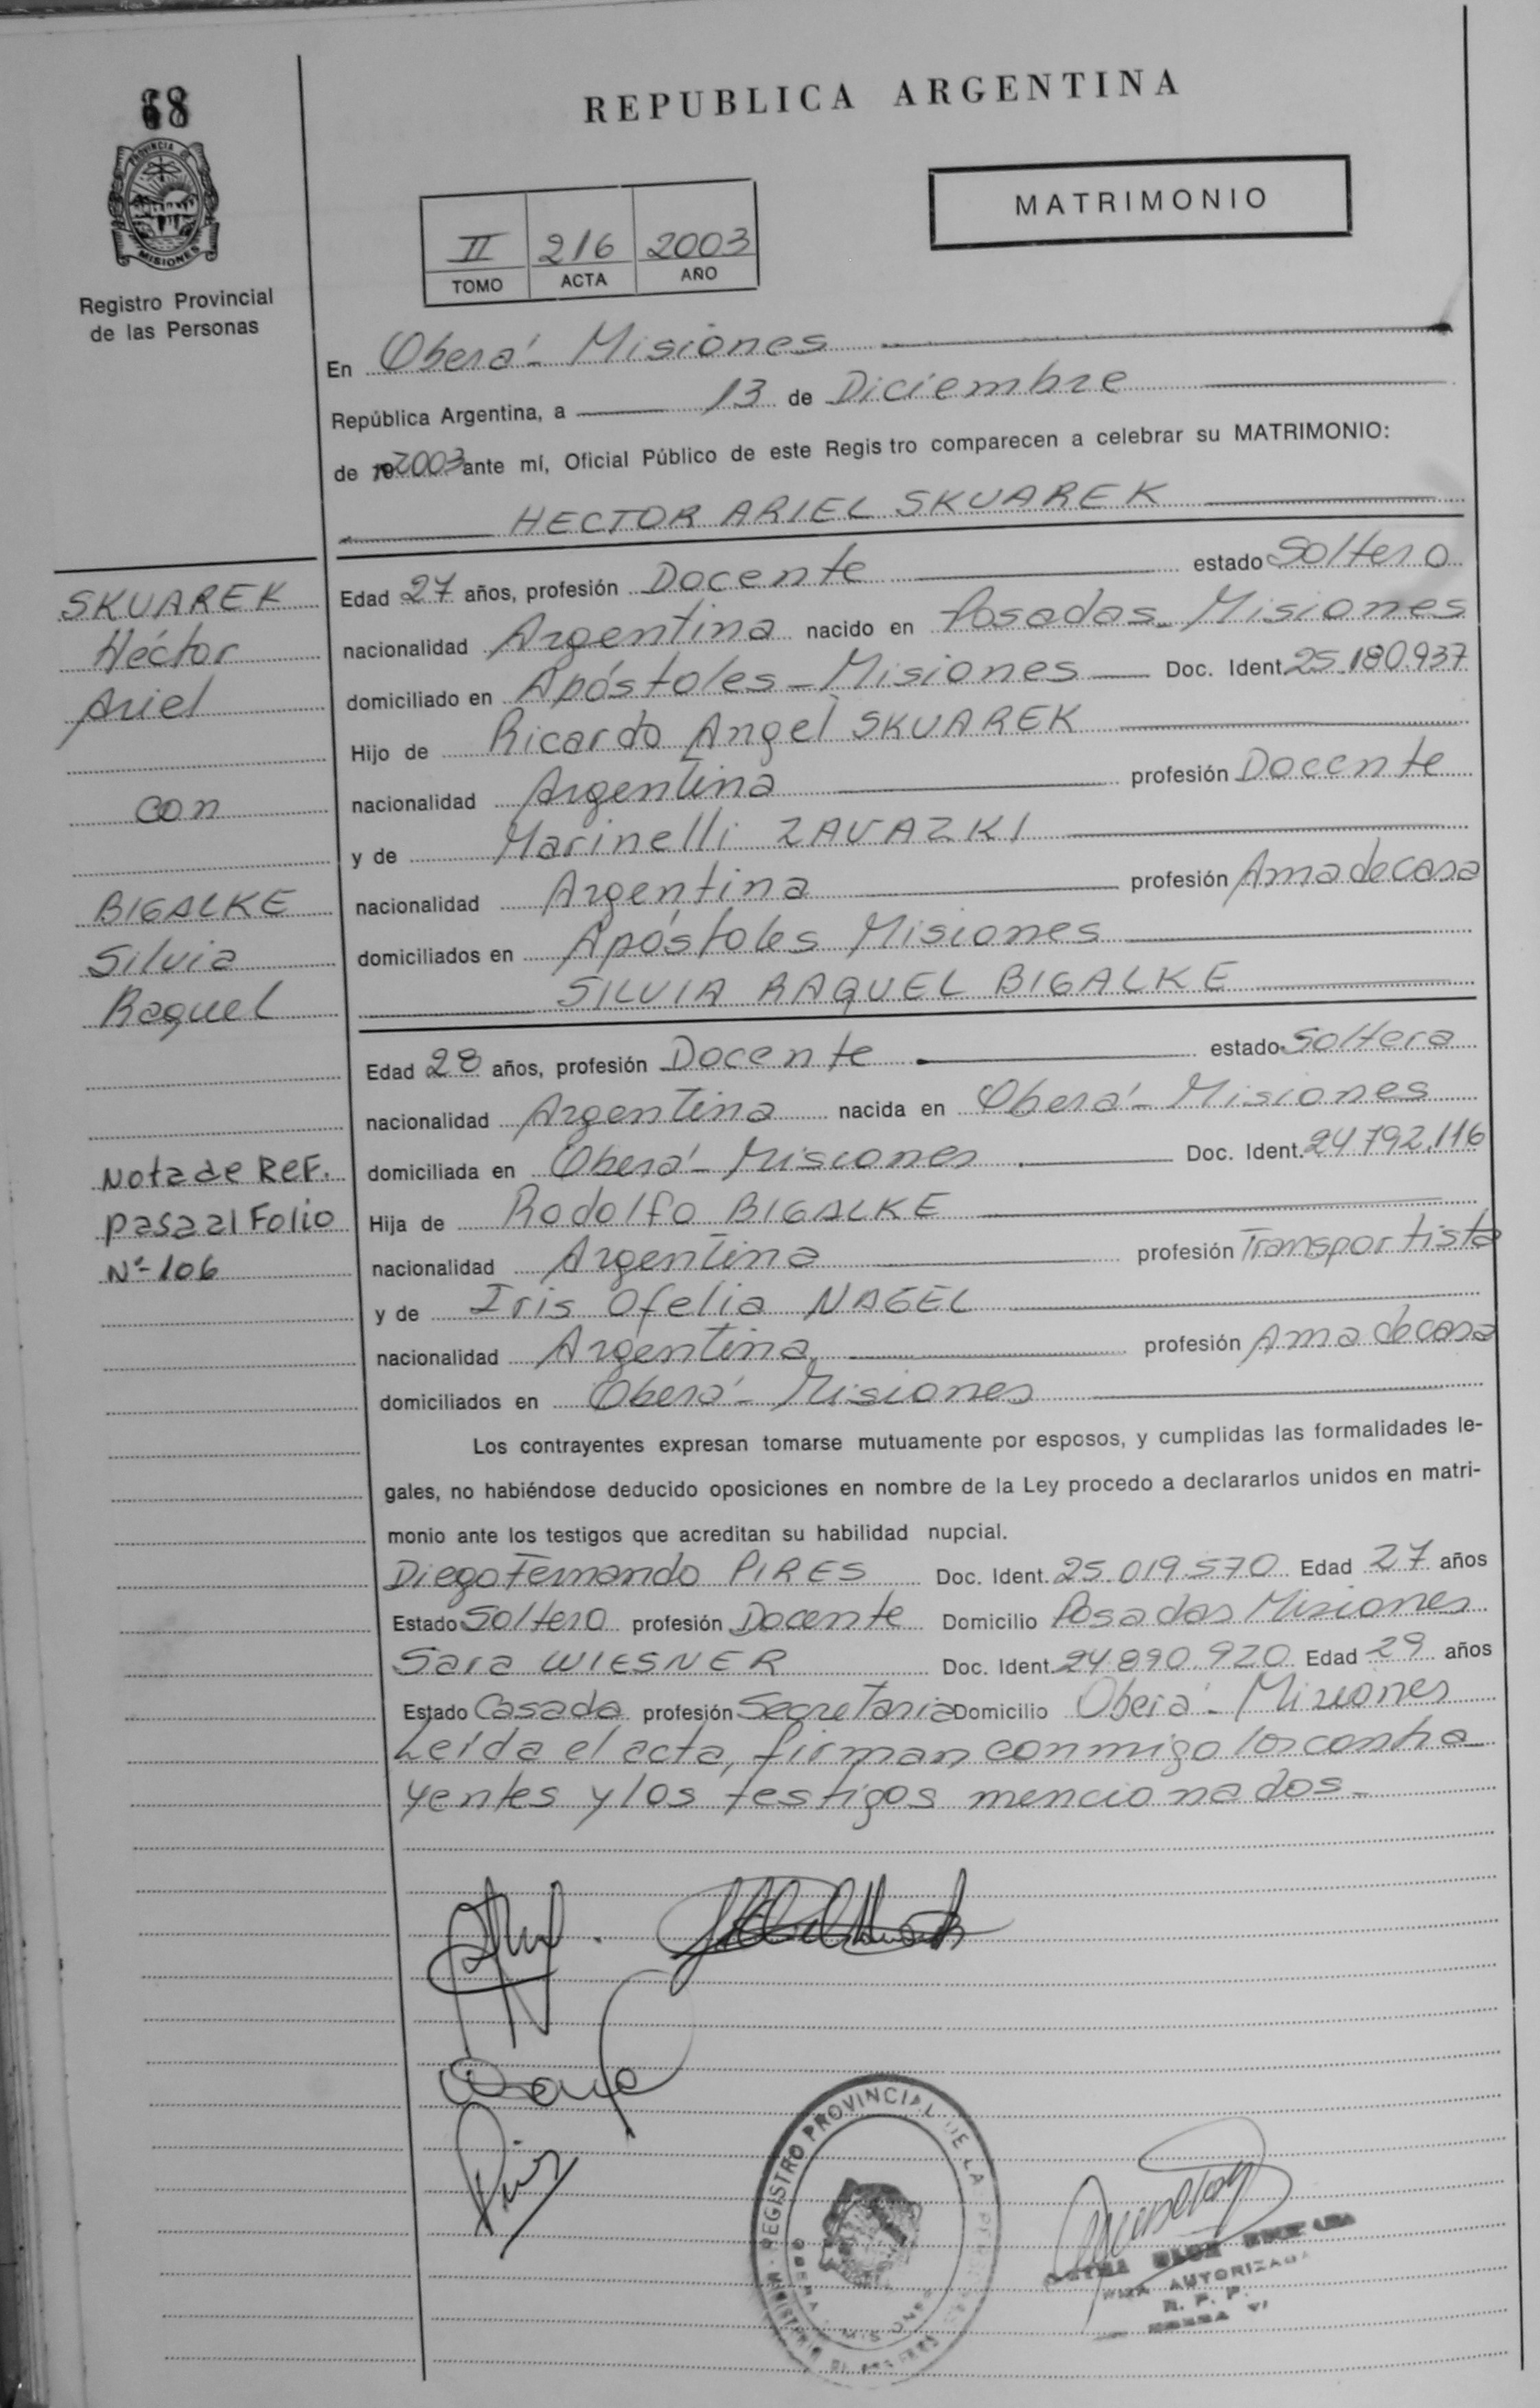 68
PROVINCIA DE
MISIONES
Registro Provincial
de las Personas
REPUBLICA ARGENTINA
MATRIMONIO
II 216 2003
TOMO ACTA AÑO
En Oberá - Misiones
República Argentina, a 13 de Diciembre
de 19 2003 ante mí, Oficial Público de este Regis tro comparecen a celebrar su MATRIMONIO:
HECTOR ARIEL SKUAREK
Edad 27 años, profesión Docente estado Soltero
nacionalidad Argentina nacido en Posadas - Misiones
domiciliado en Apóstoles - Misiones Doc. Ident. 25.180.937
Hijo de Ricardo Angel SKUAREK
nacionalidad Argentina profesión Docente
y de Marinelli ZAVAZKI
nacionalidad Argentina profesión Ama de casa
domiciliados en Apóstoles Misiones
SILVIA RAQUEL BIGALKE
Edad 28 años, profesión Docente estado Soltera
nacionalidad Argentina nacida en Oberá - Misiones
domiciliada en Oberá - Misiones Doc. Ident. 24.792.116
Hija de Rodolfo BIGALKE
nacionalidad Argentina profesión Transportista
y de Iris Ofelia NAGEL
nacionalidad Argentina profesión Ama de casa
domiciliados en Oberá - Misiones
Los contrayentes expresan tomarse mutuamente por esposos, y cumplidas las formalidades le-
gales, no habiéndose deducido oposiciones en nombre de la Ley procedo a declararlos unidos en matri-
monio ante los testigos que acreditan su habilidad nupcial.
Diego Fernando PIRES Doc. Ident. 25.019.570 Edad 27 años
Estado Soltero profesión Docente Domicilio Posadas Misiones
Sara WIESNER Doc. Ident. 24.890.920 Edad 29 años
Estado Casada profesión Secretaria Domicilio Oberá - Misiones
Leída el acta, firman conmigo los contra
yentes y los testigos mencionados -
SKUAREK
Héctor
Ariel
con
BIGALKE
Silvia
Raquel
Nota de Ref.
pasa al Folio
Nº - 106
REGISTRO PROVINCIAL DE LA
OBERA MISIONES
AUTORIZADA
R. P. P.